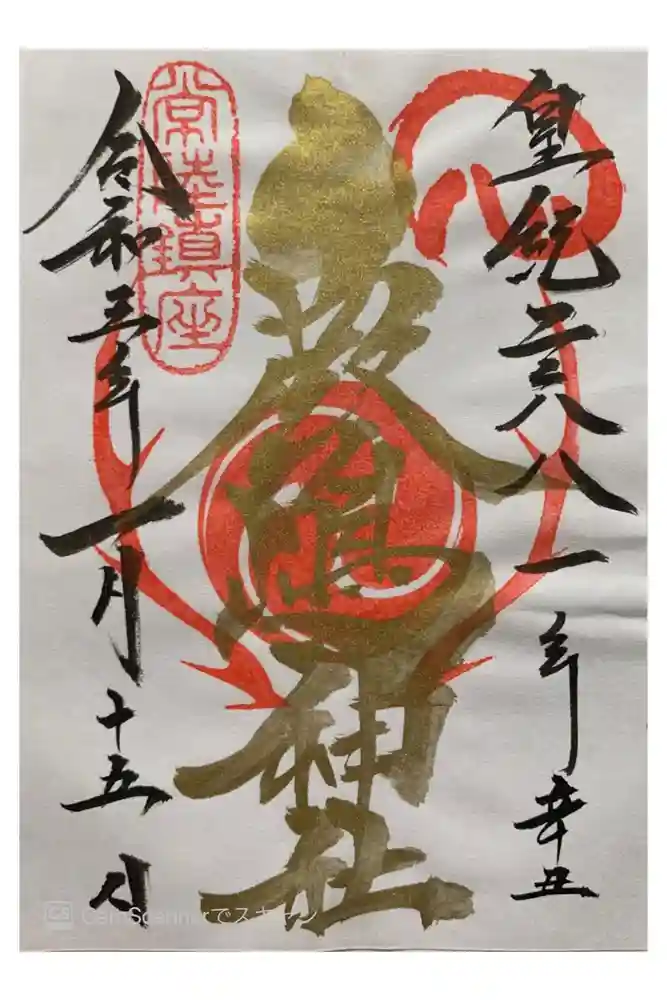 皇紀二六八一年辛丑
神社
常陸鎮座
令和三年一月十五日
CS CamScannerでスキャン